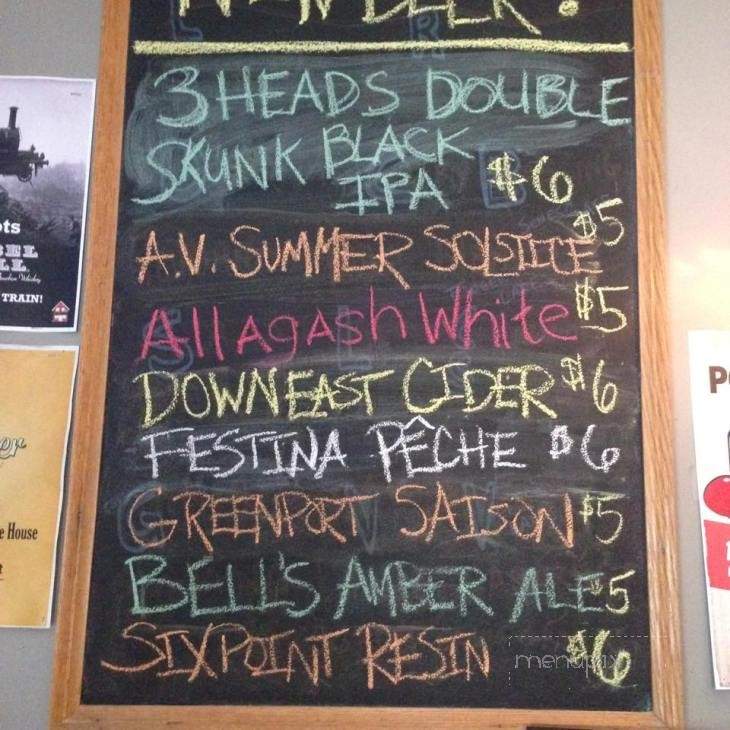 NEW BEER!
3 HEADS DOUBLE
SKUNK BLACK
IPA $6
A.V. SUMMER SOLSTICE $5
Allagash White $5
DOWNEAST CIDER $6
FESTINA PÊCHE $6
GREENPORT SAISON $5
BELL'S AMBER ALE $5
SIXPOINT RESIN $6
menupix
TRAIN!
e House